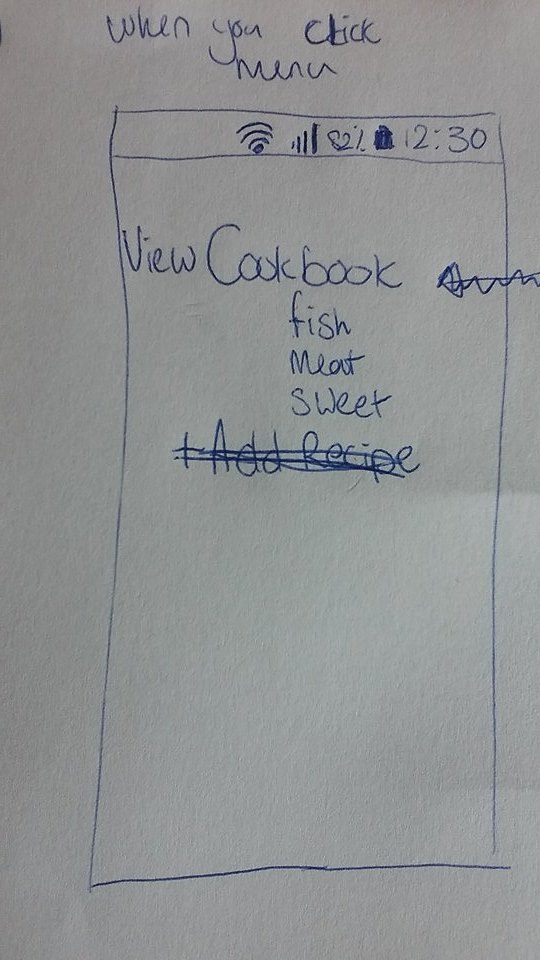 when you click
menu
82% 12:30
View Cookbook
fish
Meat
Sweet
+ Add Recipe